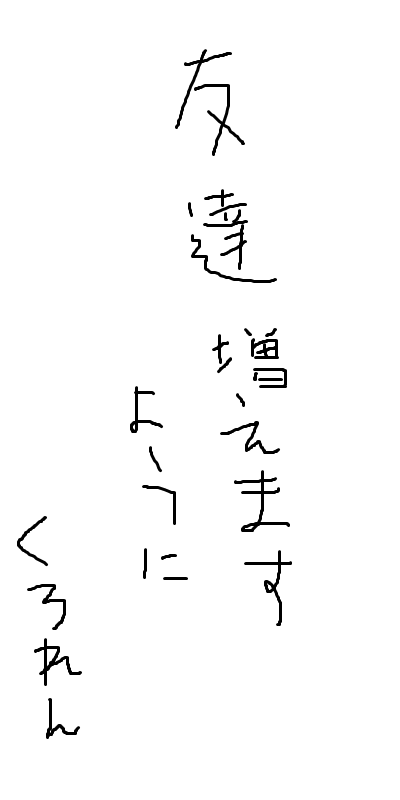 友達増えます
ように
くろれん